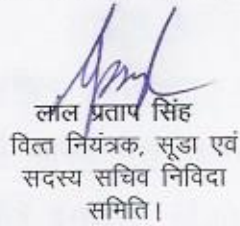 लाल प्रताप सिंह
वित्त नियंत्रक, सूडा एवं
सदस्य सचिव निविदा
समिति।